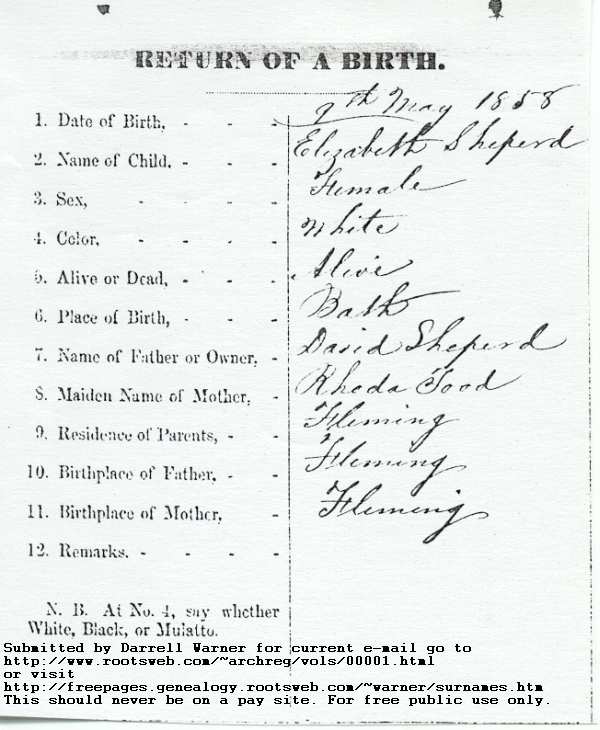 RETURN OF A BIRTH.
1. Date of Birth, - - - 9th May 1858
2. Name of Child, - - - Elizabeth Sheperd
3. Sex, - - - - Female
4. Color, - - - - White
5. Alive or Dead, - - - Alive
6. Place of Birth, - - - Bath
7. Name of Father or Owner, - David Sheperd
8. Maiden Name of Mother, - Rhoda Good
9. Residence of Parents, - - Fleming
10. Birthplace of Father, - - Fleming
11. Birthplace of Mother, - Fleming
12. Remarks. - - - -
N. B. At No. 4, say whether
White, Black, or Mulatto.
Submitted by Darrell Warner for current e-mail go to
http://www.rootsweb.com/~archreg/vols/00001.html
or visit
http://freepages.genealogy.rootsweb.com/~warner/surnames.htm
This should never be on a pay site. For free public use only.